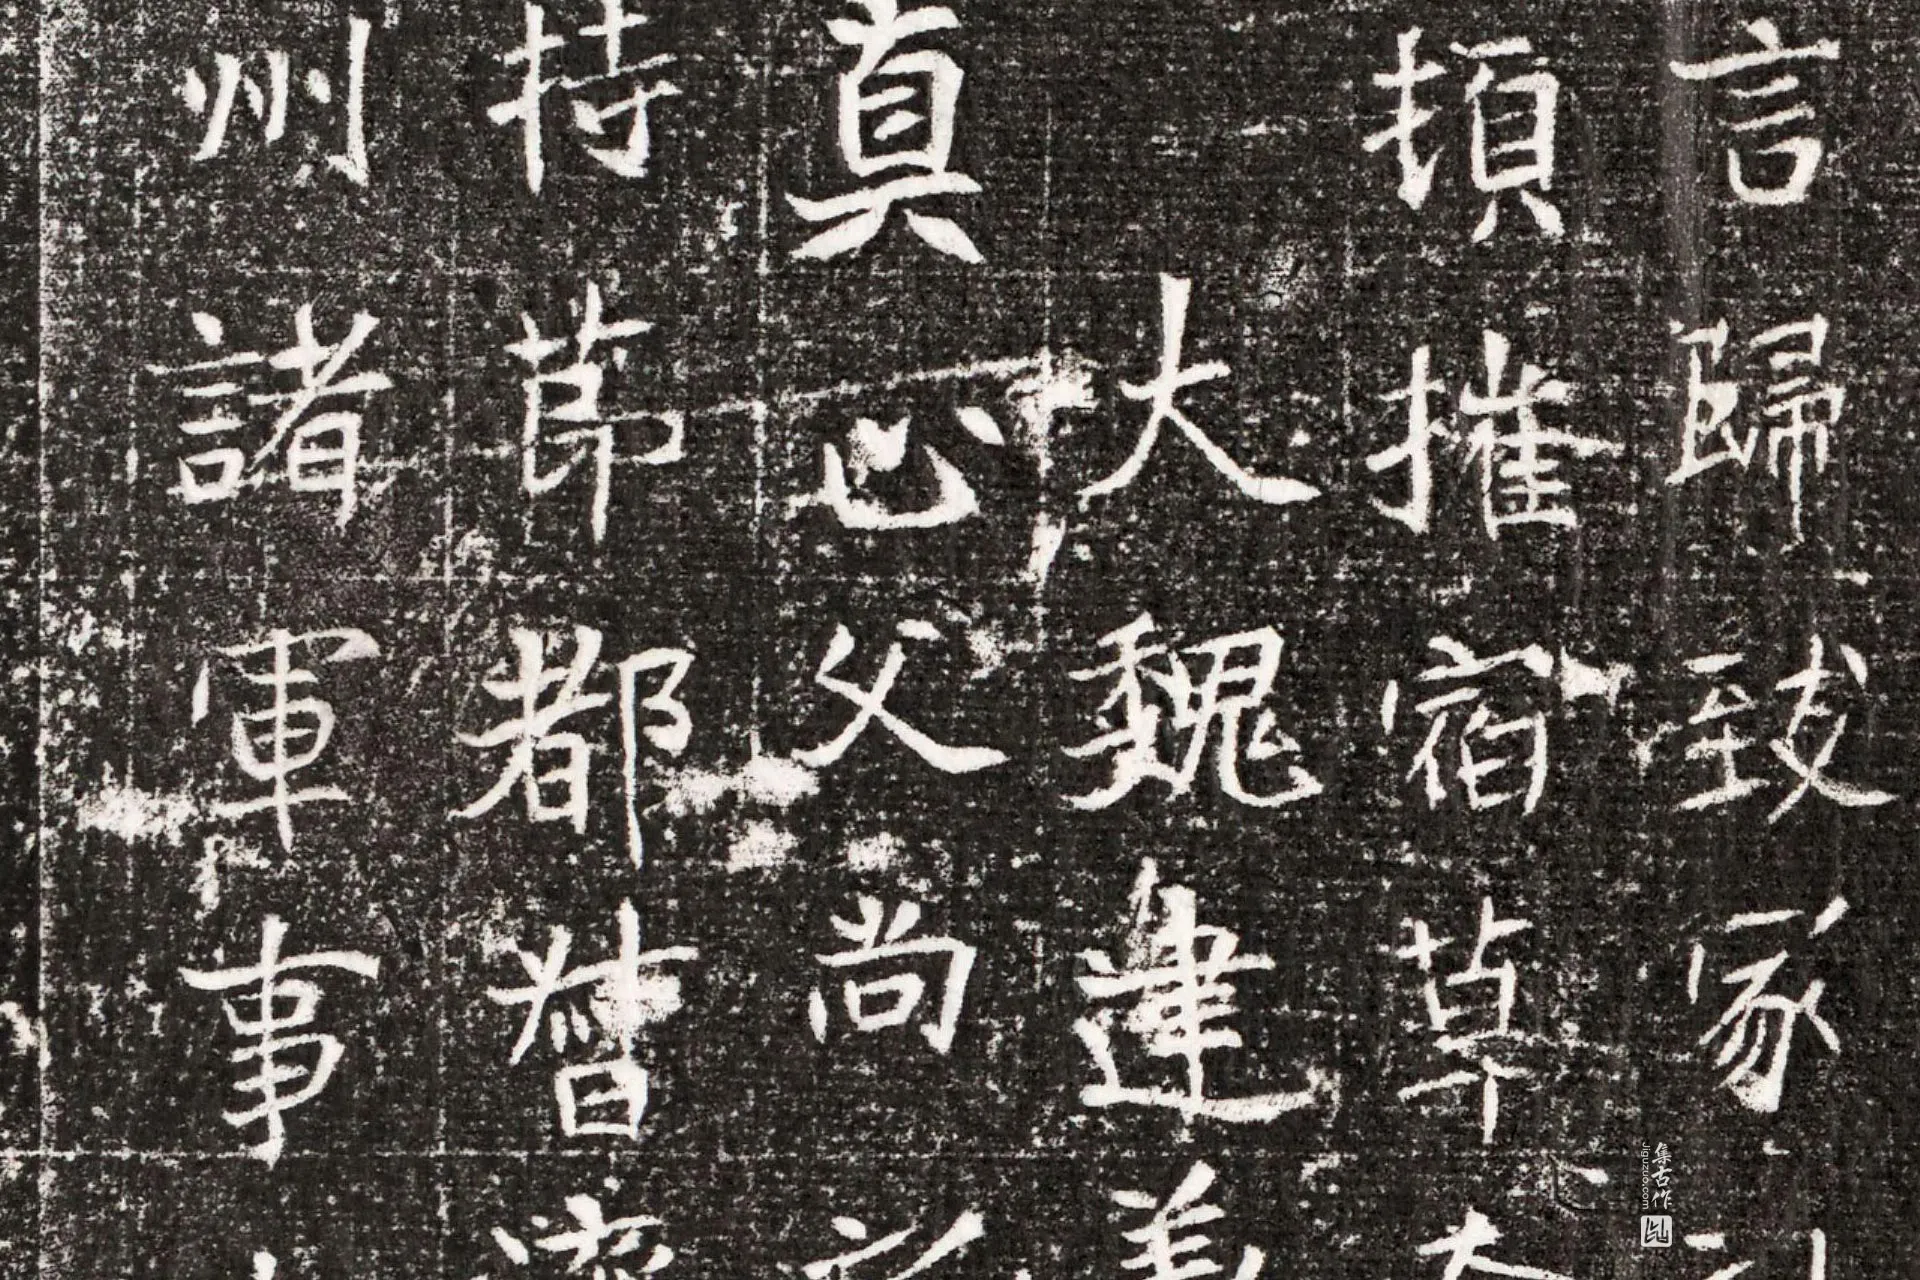 言歸致冢
損摧宿草
大魏建義
真心父尚
持節都督
州諸軍事
集古作
jiguzuo.com